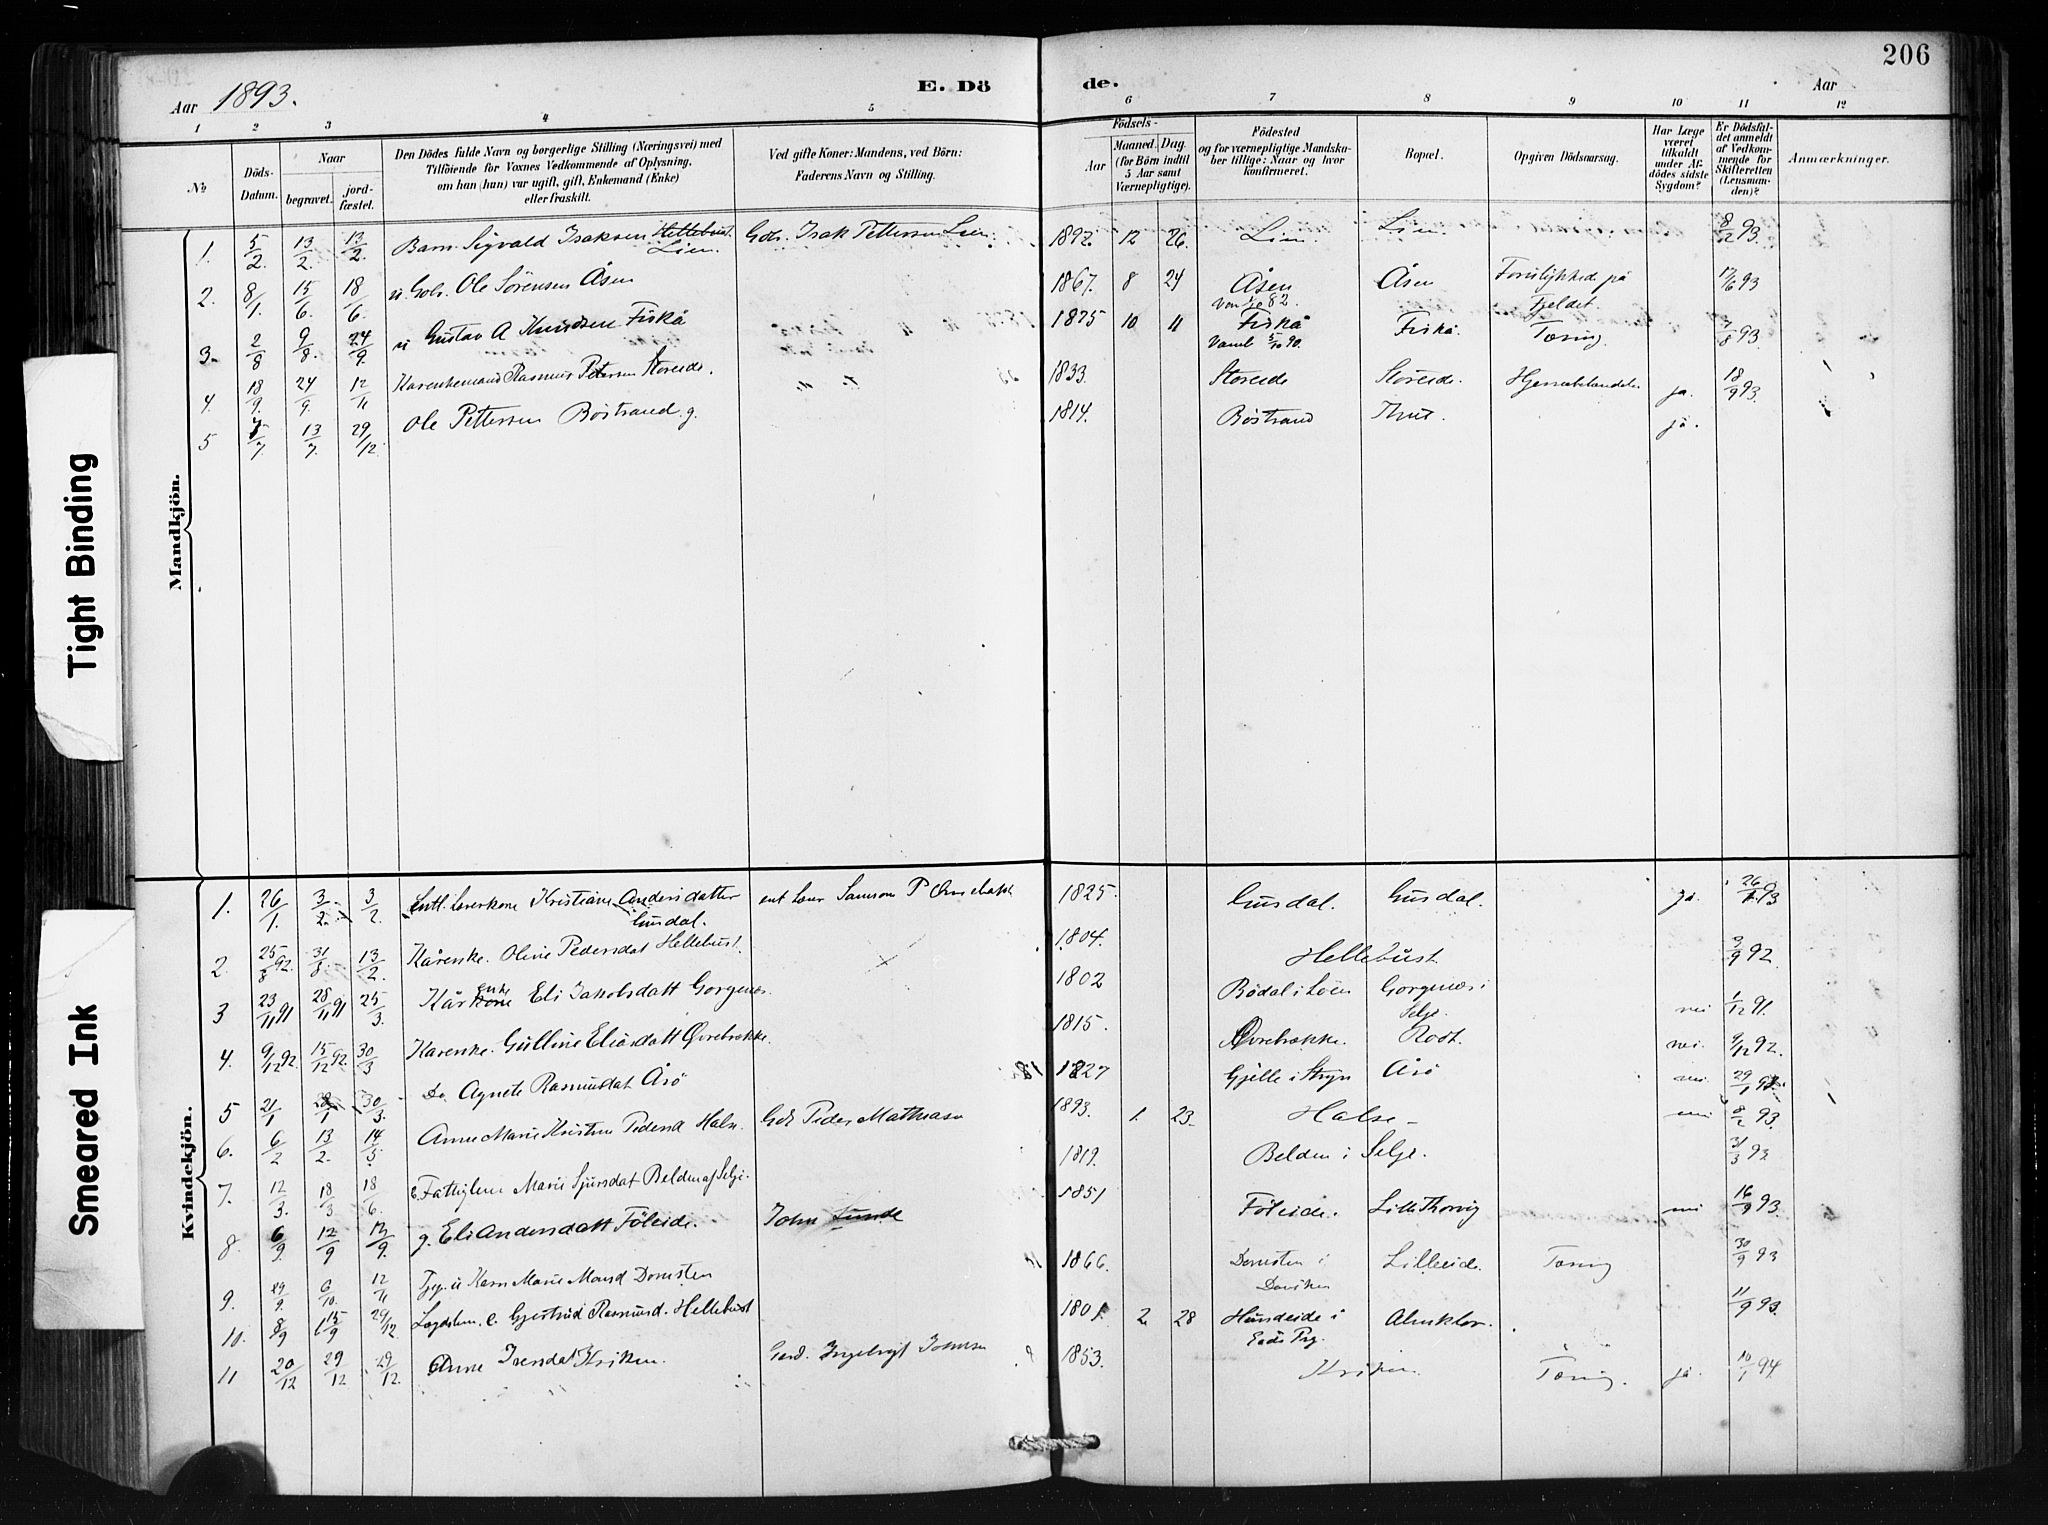 206
Aar 1893.
E. Dö
de.
Aar
1 2 3 4 5 6 7 8 9 10 11 12
No
Döds-Datum.
Naar
begravet.
jord-fæstet.
Den Dödes fulde Navn og borgerlige Stilling (Næringsvei) med
Tilföiende for Voxnes Vedkommende af Oplysning,
om han (hun) var ugift, gift, Enkemand (Enke)
eller fraskilt.
Ved gifte Koner: Mandens, ved Börn:
Faderens Navn og Stilling.
Födsels-
Aar
Maaned. Dag.
(for Börn indtil
5 Aar samt
Værnepligtige).
Födested
og for værnepligtige Mandska-
ber tillige: Naar og hvor
konfirmeret.
Bopæl.
Opgiven Dödsaarsag.
Har Læge
været
tilkaldt
under Af-
dödes sidste
Sygdom?
Er Dödsfal-
det anmeldt
af Vedkom-
mende for
Skifteretten
(Lensman-
den)?
Anmærkninger.
Mandkjön.
1. 5/2. 13/2. 13/2. Barn Sigvald Isaksen Hellebust Lien. Gbr. Isak Pettersen Lien. 1892. 12 26. Lien. Lien. 8/2 93.
2. 8/1 15/6. 18/6. u. Gbr. Ole Sörensen Åsen 1867. 8 24 Åsen Åsen Forulykkede på Fjeldet 17/6 93
3. 2/8 9/8. 24/9. u Gustav A Knudsen Fiskå 1875 10 11 Fiskå Fiskå. Tæring. 7/8 93.
4. 18/9. 24/9. 12/11 Kårenkemand Rasmus Petersen Storeide. 1833. Storeide Storeide. ja. 18/9 93.
5 5/7. 13/7. 29/12. Ole Pettersen Böstrand. g. 1814. Böstrand ja.
Kvindekjön.
1. 26/1. 3/2. 3/2. Kristiane Andersdatter Gusdal. 1825. Gusdal. Gusdal. ja. 26/1 93
2. 25/8 92. 31/8. 13/2. Kårenke. Oline Pedersdat Hellebust. 1804. Hellebust. 3/9 92.
3 23/11 91 28/11 91 25/3. Kårkone enke Eli Jakobsdatt Gorgenæs. 1802 Bödal i Loen Gorgenæs i Selje. nei 1/12 91.
4. 9/12 92. 15/12 92. 30/3 Kårenke. Gulline Eliasdatt Övrebrække. 1815. Övrebrække. nei. 9/12 92.
5 21/1 28/1 30/3. Do Agnete Rasmusdat Årö 1827 Gjelle i Stryn Årö nei. 29/1 93.
6. 6/2 13/2. 14/5. Anne Marie Kristine Pedersd Halse. Gbr Peder Mathiasen 1893. 1. 23. Halse nei 8/2 93.
7. 12/3. 18/3 18/6. e. Fattiglem Marie Sjursdat Belden af Selje. 1819. Belden i Selje. 31/3 93
8. 6/9. 12/9 12/9. g. Eli Andersdatt Föleide. John Lunde 1851 Föleide. Lille Thorvig nei 16/9 93.
9. 29/9. 6/10. 12/11 u Karn Marie Monsd Domsten 1866. Domsten i Daviken Lilleeide. Tæring 30/9 93
10. 8/9 15/9 29/12. Lægdslem. e. Gjertrud Rasmusd. Hellebust 1801. 2 28 Hundeide i Eids Prg. Almklov. 11/9 93.
11 20/12 29/12 29/12. Anne Iversdat Kriken. Gard. Ingebrigt Johnsen 1853. Kriken Tæring. ja. 10/1 94.
Tight Binding
Smeared Ink